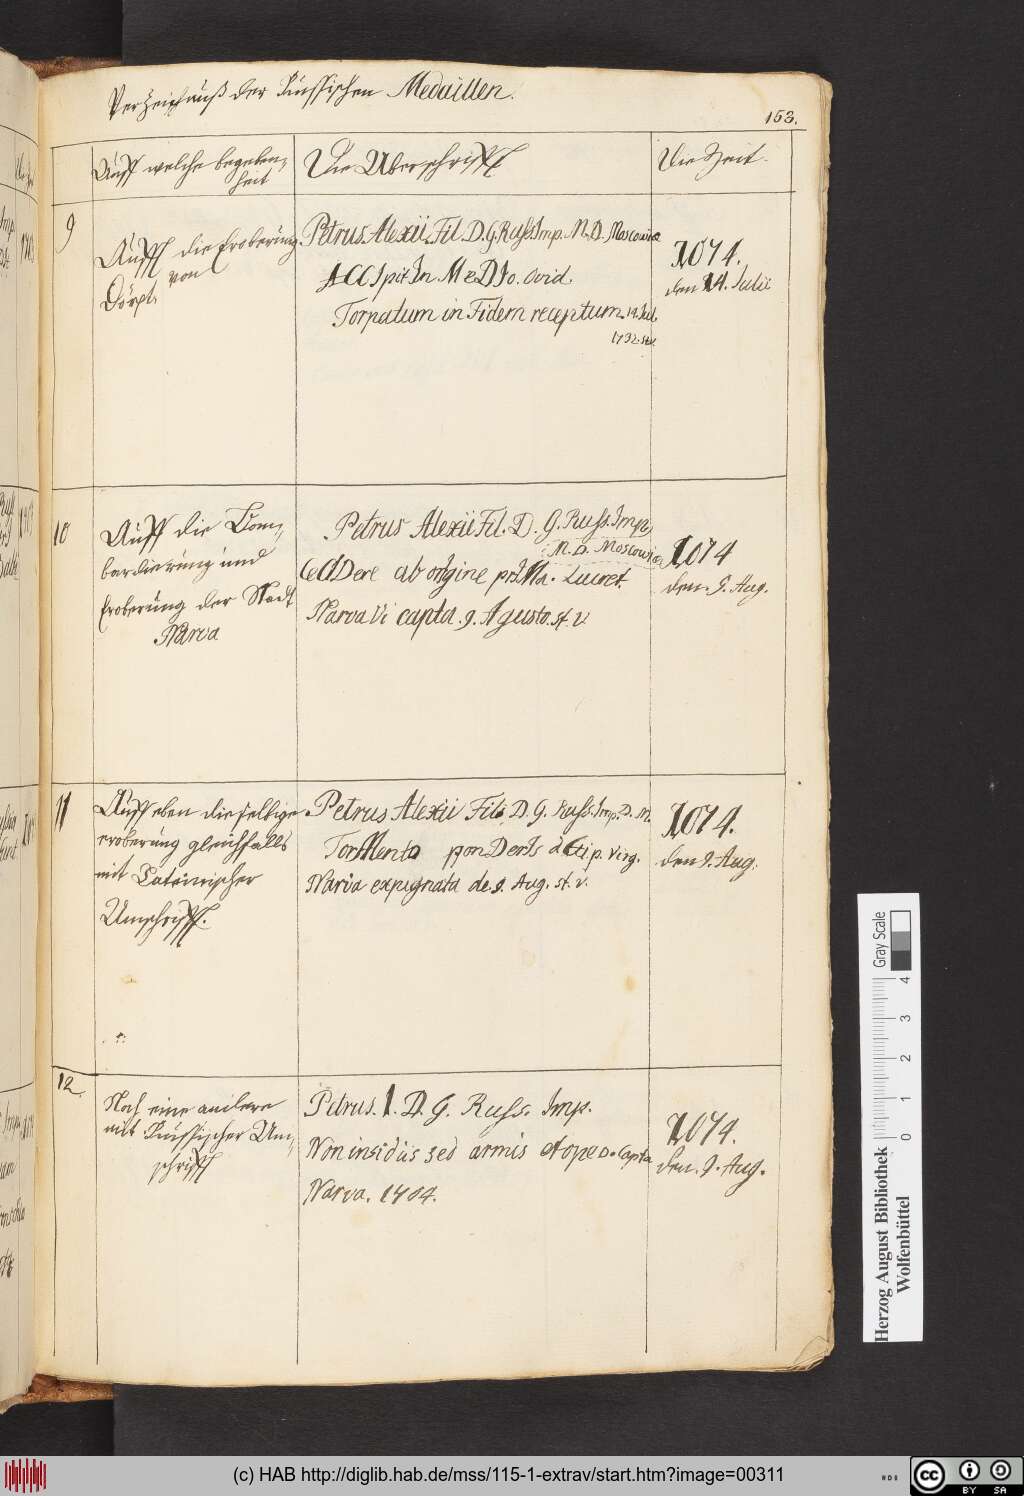 Verzeichnüß der Rüssischen Medaillen.
153.
Auff welche begeben-
heit
Die Uberschrifft
Die Zeit.
9
Aufff die Eroberüng
von
Dörpt.
Petrus Alexii. Fil. D. G. Russ. Imp. M. D. Moscowiæ
ACCIpit In MeDIo. Ovid.
Torpatum in Fidem receptum. 14. Jul.
1074.
den 14. Julii
10
Auff die Bom-
bardierüng und
Eroberüng der Stadt
Narva
Petrus Alexii Fil. D. G. Russ. Imp.
M. D. Moscowiæ
CeDere ab orIgine prIMa. Lucret.
Narva Vi capta. 9. Agusto. st. v.
1074
den. 9. Aug.
11
Auff eben dieselbige
eroberüng gleichfalls
mit Lateinischer
Umschrifft.
Petrus Alexii Fil. D. G. Russ. Imp. D. M.
TorMento ponDerIs Virg.
Narva expugnata de. 9. Aug. st. v.
1074.
den 9. Aug.
12.
Noch eine andere
mit Rüssischer Um-
schrifft
Petrus. I. D. G. Russ. Imp.
Non insidiis sed armis et ope D. Capta
Narva. 1704.
1074.
den. 9. Aug.
Gray Scale
0 1 2 3 4
Herzog August Bibliothek
Wolfenbüttel
(c) HAB http://diglib.hab.de/mss/115-1-extrav/start.htm?image=00311
cc BY SA